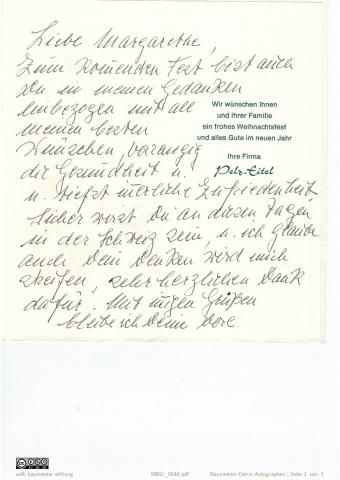 Liebe Margarethe,
Zum kommenden Fest bist auch
Du in meinen Gedanken
einbezogen mit all
meinen besten
Wünschen, vorrangig
die Gesundheit u.
u. tiefst innerliche Zufriedenheit.
Sicher wirst Du an diesen Tagen
in der Schweiz sein, u. ich glaube
auch Dein Denken wird mich
streifen, sehr herzlichen Dank
dafür. Mit innigen Grüßen
bleibe ich Deine Dore.
Wir wünschen Ihnen
und Ihrer Familie
ein frohes Weihnachtsfest
und alles Gute im neuen Jahr
Ihre Firma
Pelz-Eitel
willi baumeister stiftung
MBD_0548.pdf
Baumeister-Dehm Autographen | Seite 1 von 1